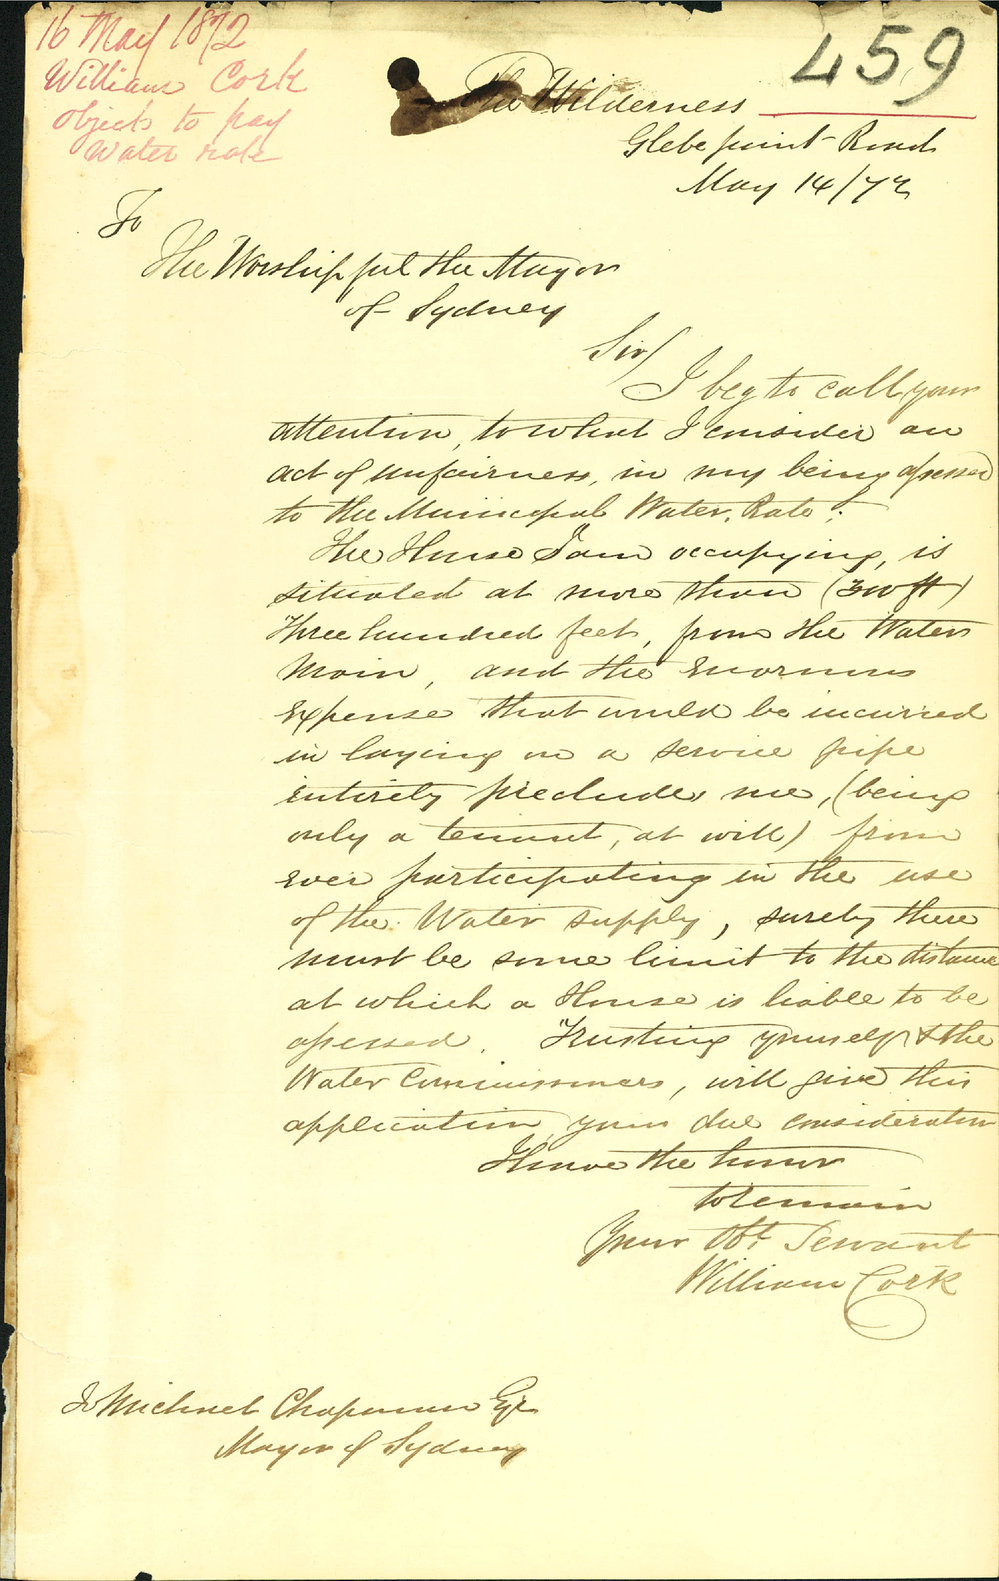 16 May 1872
William Cork
objects to pay
Water rate
459
The Wilderness
Glebe point Road
May 14/72
To
The Worshipful the Mayor
of Sydney
Sir/
I beg to call your
attention, to what I consider an
act of unfairness, in my being assessed
to the Municipal Water, Rate!
The House I am occupying, is
situated at more than (300 ft)
Three hundred feet, from the Water
Main, and the enormous
expense that would be incurred
in laying on a service pipe
entirely precludes me, (being
only a tenant, at will) from
ever participating in the use
of the Water supply, surely there
must be some limit to the distance
at which a House is liable to be
assessed. Trusting yourself & the
Water Commissioners, will give this
application your due consideration
I have the honor
to remain
Your Obt Servant
William Cork
To Michael Chapman Esq
Mayor of Sydney